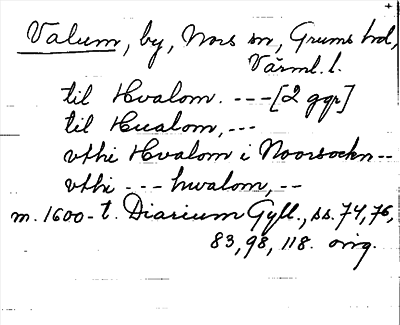 Valum, by, Nors sn, Grums hd,
Värml. l.
til Hvalom. --- [2 ggr]
til Hualom, ---
vthi Hvalom i Noorsockn --
vthi --- hwalom, --
m. 1600-t. Diarium Gyll., ss. 74, 76,
83, 98, 118. orig.